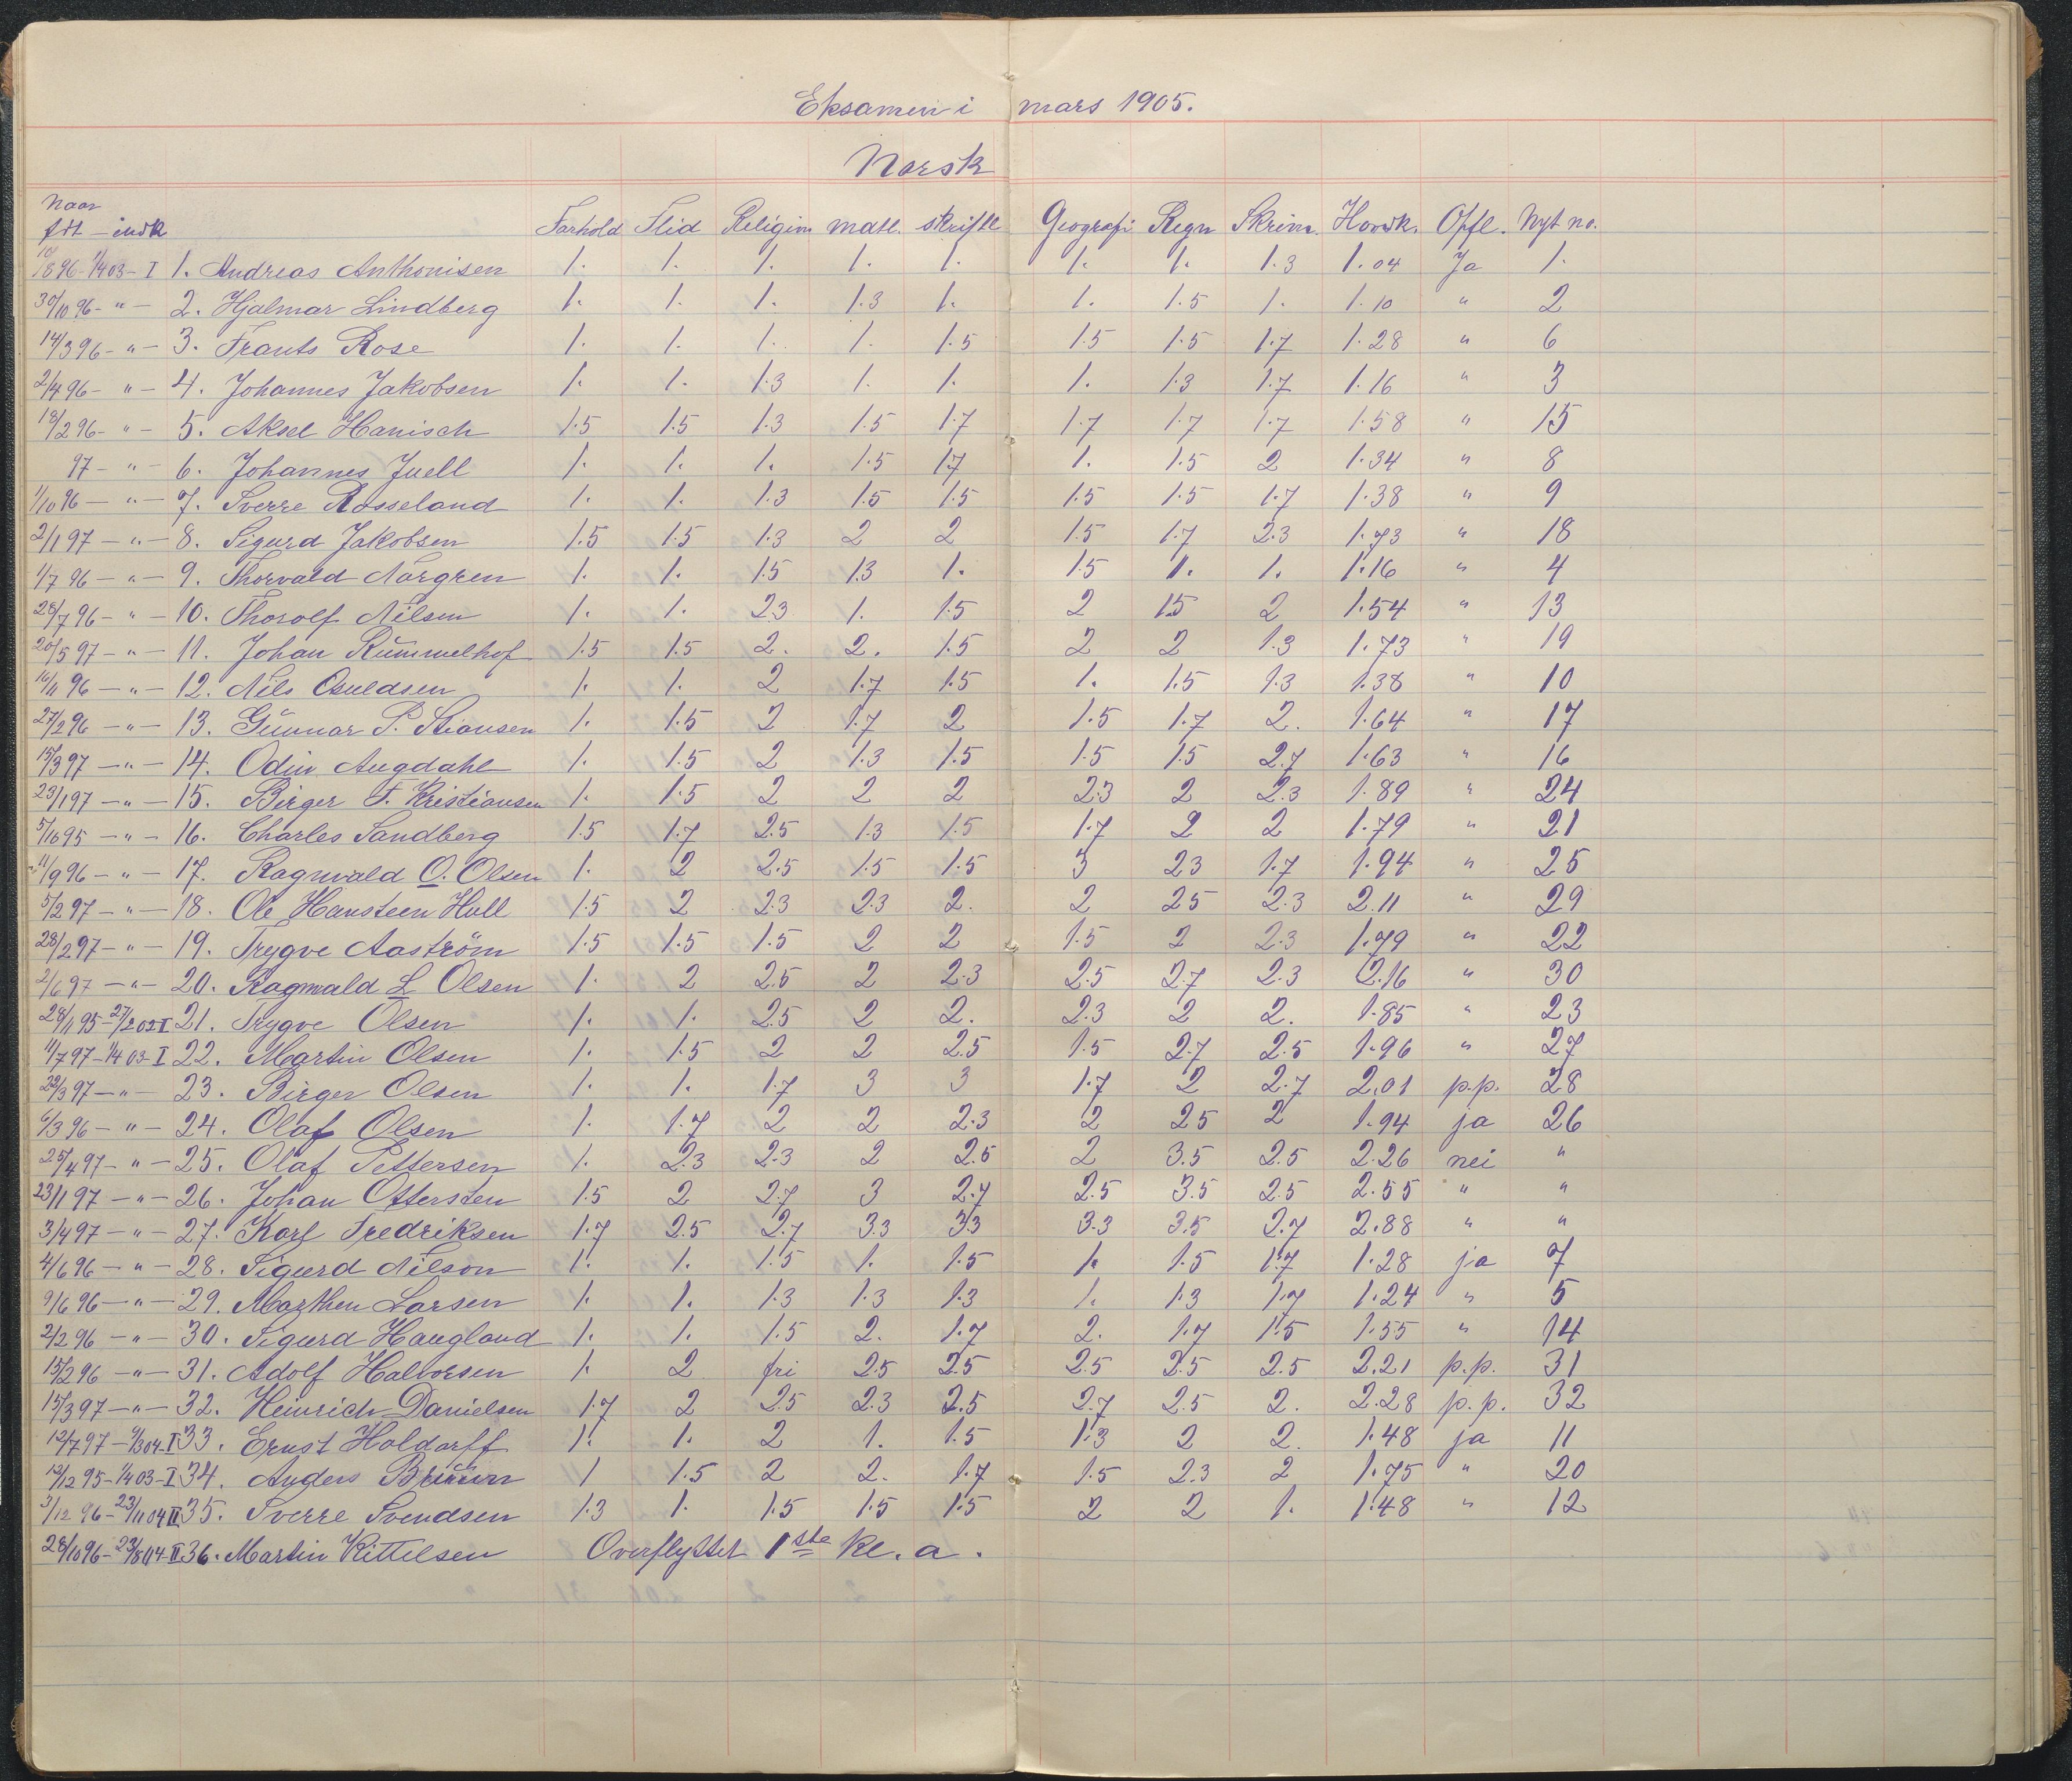 Eksamen i mars 1905.
Norsk
Naar
født - indk Forhold Flid Religion mdtl. skriftl Geografi Regn Skrivn. Hovedk. Opfl. Nyt no.
10/8 96 - 1/4 03 - I 1. Andreas Anthonisen 1. 1. 1. 1. 1. 1. 1. 1.3 1.04 Ja 1.
30/10 96 - " - 2. Hjalmar Lindberg 1. 1. 1. 1.3 1. 1. 1.5 1. 1.10 " 2
14/3 96 - " - 3. Frants Rose 1. 1. 1. 1. 1.5 1.5 1.5 1.7 1.28 " 6
2/4 96 - " - 4. Johannes Jakobsen 1. 1. 1.3 1. 1. 1. 1.3 1.7 1.16 " 3
18/2 96 - " - 5. Aksel Hanisch 1.5 1.5 1.3 1.5 1.7 1.7 1.7 1.7 1.58 " 15
97 - " - 6. Johannes Juell 1. 1. 1. 1.5 1.7 1. 1.5 2 1.34 " 8
1/10 96 - " - 7. Sverre Rosseland 1. 1. 1.3 1.5 1.5 1.5 1.5 1.7 1.38 " 9
2/1 97 - " - 8. Sigurd Jakobsen 1.5 1.5 1.3 2 2 1.5 1.7 2.3 1.73 " 18
1/7 96 - " - 9. Thorvald Nörgren 1. 1. 1.5 1.3 1. 1.5 1. 1. 1.16 " 4
28/7 96 - " - 10. Thorolf Nilsen 1. 1. 2.3 1. 1.5 2 1.5 2 1.54 " 13
20/5 97 - " - 11. Johan Rummelhof 1.5 1.5 2. 2. 1.5 2 2 1.3 1.73 " 19
16/11 96 - " - 12. Nils Osuldsen 1. 1. 2 1.7 1.5 1. 1.5 1.3 1.38 " 10
27/2 96 - " - 13. Gunnar P. Stiansen 1. 1.5 2 1.7 2 1.5 1.7 2. 1.64 " 17
15/3 97 - " - 14. Odin Augdahl 1. 1.5 2 1.3 1.5 1.5 1.5 2.7 1.63 " 16
23/1 97 - " - 15. Birger F. Kristiansen 1. 1.5 2 2 2 2.3 2 2.3 1.89 " 24
5/10 95 - " - 16. Charles Sandberg 1.5 1.7 2.5 1.3 1.5 1.7 2 2 1.79 " 21
11/9 96 - " - 17. Ragnvald O. Olsen 1. 2 2.5 1.5 1.5 3 2.3 1.7 1.94 " 25
5/2 97 - " - 18. Ole Hansteen Hull 1.5 2 2.3 2.3 2. 2 2.5 2.3 2.11 " 29
28/2 97 - " - 19. Trygve Aaström 1.5 1.5 1.5 2 2 1.5 2 2.3 1.79 " 22
2/6 97 - " - 20. Ragnvald L Olsen 1. 2 2.5 2 2.3 2.5 2.7 2.3 2.16 " 30
28/11 95 - 27/2 02 I 21. Trygve Olsen 1. 1. 2.5 2 2. 2.3 2 2. 1.85 " 23
11/7 97 - 1/4 03 - I 22. Martin Olsen 1. 1.5 2 2 2.5 1.5 2.7 2.5 1.96 " 27
22/3 97 - " - 23. Birger Olsen 1. 1. 1.7 3 3 1.7 2 2.7 2.01 p.p. 28
6/3 96 - " - 24. Olaf Olsen 1. 1.7 2 2 2.3 2 2.5 2 1.94 ja 26
25/4 97 - " - 25. Olaf Pettersen 1. 2.3 2.3 2 2.5 2 3.5 2.5 2.26 nei "
23/1 97 - " - 26. Johan Ottersten 1.5 2 2.7 3 2.7 2.5 3.5 2.5 2.55 " "
3/4 97 - " - 27. Karl Fredriksen 1.7 2.5 2.7 3.3 3.3 3.3 3.5 2.7 2.88 " "
4/6 96 - " - 28. Sigurd Nilson 1. 1. 1.5 1. 1.5 1. 1.5 1.7 1.28 ja 7
9/6 96 - " - 29. Marthen Larsen 1. 1. 1.3 1.3 1.3 1. 1.3 1.7 1.24 " 5
2/2 96 - " - 30. Sigurd Haugland 1. 1. 1.5 2. 1.7 2. 1.7 1.5 1.55 " 14
15/2 96 - " - 31. Adolf Halvorsen 1. 2 fri 2.5 2.5 2.5 2.5 2.5 2.21 p.p. 31
15/3 97 - " - 32. Heinrich Danielsen 1.7 2 2.5 2.3 2.5 2.7 2.5 2. 2.28 p.p. 32
12/7 97 - 9/3 04 - I 33. Ernst Holdorff 1. 1. 2 1. 1.5 1.3 2 2. 1.48 ja 11
12/12 95 - 1/4 03 - I 34. Anders Bruun 1 1.5 2 2. 1.7 1.5 2.3 2 1.75 " 20
3/12 96 - 23/11 04 II 35. Sverre Svendsen 1.3 1. 1.5 1.5 1.5 2 2 1. 1.48 " 12
28/10 96 - 23/8 04 - II 36. Martin Kittelsen Overflyttet 1ste kl. a.